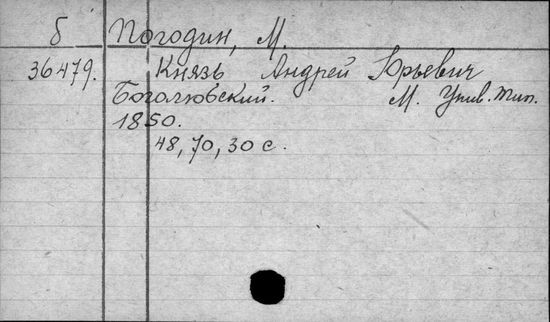 Б Погодин, М.
36479. Князь Андрей Юрьевич
Боголюбский. М. Унив. тип.
1850.
48, 70, 30 с.